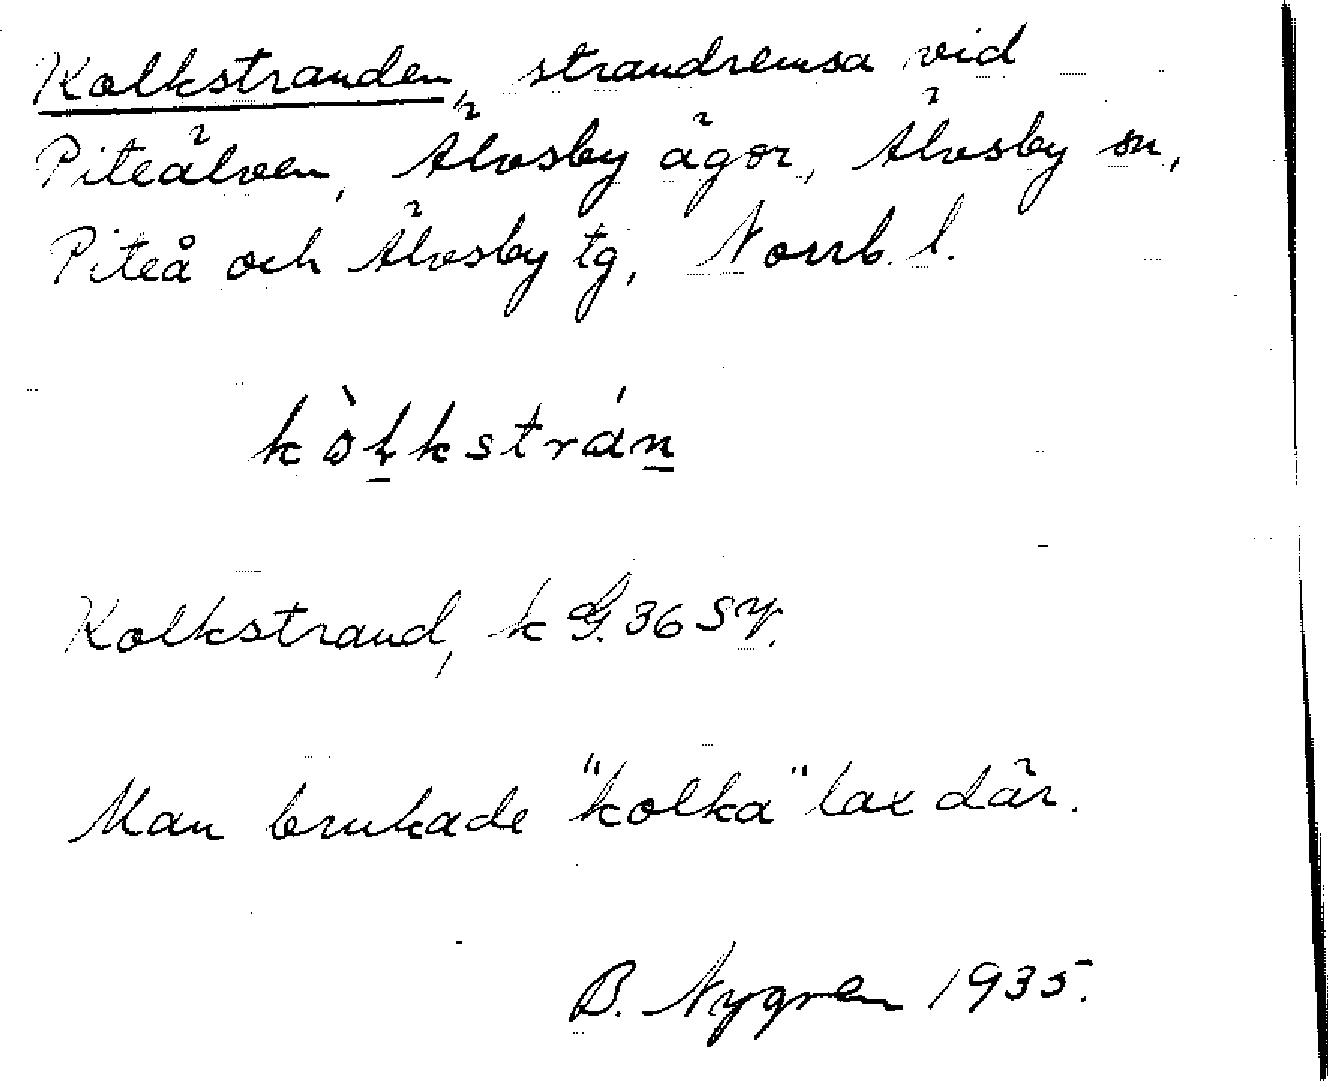 Kolkstranden, strandremsa vid
Piteälven, Älvsby ägor, Älvsby sn,
Piteå och Älvsby tg, Norrb. l.
kòḷkstrán
Kolkstrand, k G. 36 SV.
Man brukade "kolka" lax där.
B. Nygren 1935.